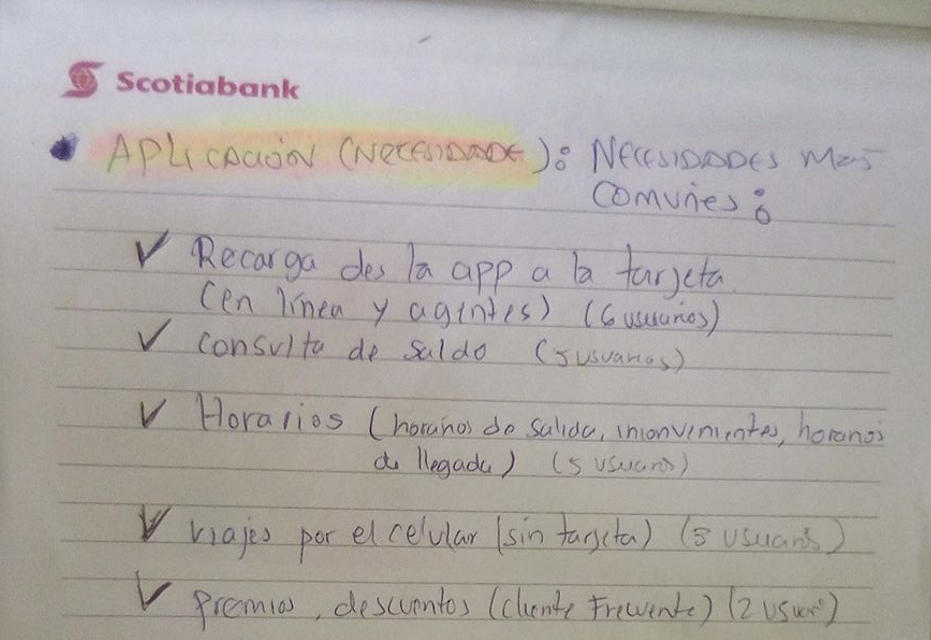 Scotiabank
APLICACIÓN (NECESIDADE): NECESIDADES MAS
COMUNES:
Recarga des la app a la tarjeta
(en línea y agentes) (6 usuarios)
Consulta de Saldo (5 usuarios)
Horarios (horarios de salida, inconvenientes, horarios
de llegada) (5 usuarios)
viajes por el celular (sin tarjeta) (3 usuarios)
Premios, descuentos (cliente Frecuente) (2